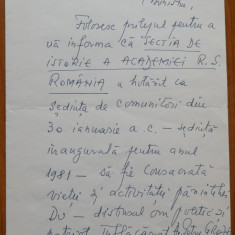 Folosesc prilejul pentru a
vă informa că SECŢIA DE
ISTORIE A ACADEMIEI R.S.
ROMÂNIA a hotărît ca
şedinţa de comunicări din
30 ianuarie a.c. – şedinţă
inaugurală pentru anul
1981 – să fie consacrată
vieţii şi activităţii părintelui
Dv – distinsul om politic şi
patriot înflăcărat